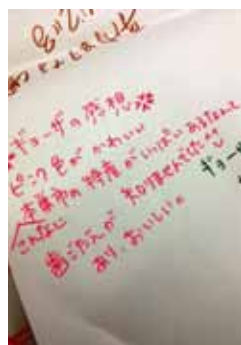 ギョーザの感想
ピンク色がかわいい
本巣市の特産がいっぱいあるなんて
こんなに
知りませんでした
歯ごたえが
あり、おいしい。
ギョー